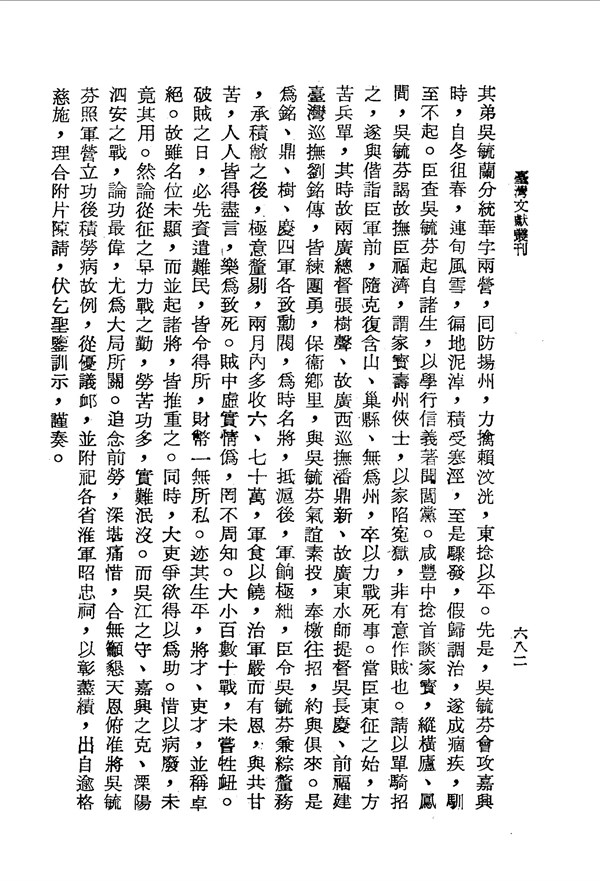 臺灣文獻叢刊
六八二
其弟吳毓蘭分統華字兩營，回防揚州，力擒賴汶洸，東捻以平。先是，吳毓芬會攻嘉興
時，自冬徂春，連旬風雪，徧地泥淖，積受寒溼，至是驟發，假歸調治，遂成痼疾，馴
至不起。臣查吳毓芬起自諸生，以學行信義著聞閭黨。咸豐中捻首談家寶，縱橫廬、鳳
間，吳毓芬謁故撫臣福濟，謂家寶壽州俠士，以家陷寃獄，非有意作賊也。請以單騎招
之，遂與偕詣臣軍前，隨克復含山、巢縣、無爲州，卒以力戰死事。當臣東征之始，方
苦兵單，其時故兩廣總督張樹聲、故廣西巡撫潘鼎新、故廣東水師提督吳長慶、前福建
臺灣巡撫劉銘傳，皆練團勇，保衞鄉里，與吳毓芬氣誼素投，奉檄往招，約與俱來。是
爲銘、鼎、樹、慶四軍各致勳閥，爲時名將，抵滬後，軍餉極絀，臣令吳毓芬兼綜釐務
，承積敝之後，極意釐剔，兩月內多收六、七十萬，軍食以饒，治軍嚴而有恩，與共甘
苦，人人皆得盡言，樂爲致死。賊中虛實情僞，罔不周知。大小百數十戰，未嘗牲衄。
破賊之日，必先資遣難民，皆令得所，財幣一無所私。迹其生平，將才、吏才，並稱卓
絕。故雖名位未顯，而並起諸將，皆推重之。同時，大吏爭欲得以爲助。惜以病廢，未
竟其用。然論從征之早力戰之勤，勞苦功多，實難泯沒。而吳江之守、嘉興之克、溧陽
泗安之戰，論功最偉，尤爲大局所關。追念前勞，深堪痛惜，合無籲懇天恩俯准將吳毓
芬照軍營立功後積勞病故例，從優議卹，並附祀各省淮軍昭忠祠，以彰藎績，出自逾格
慈施，理合附片陳請，伏乞聖鑒訓示，謹奏。